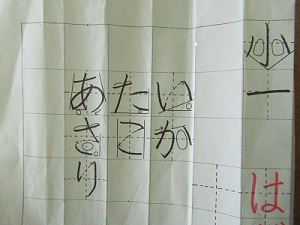 小一
は
いか
たこ
あさり